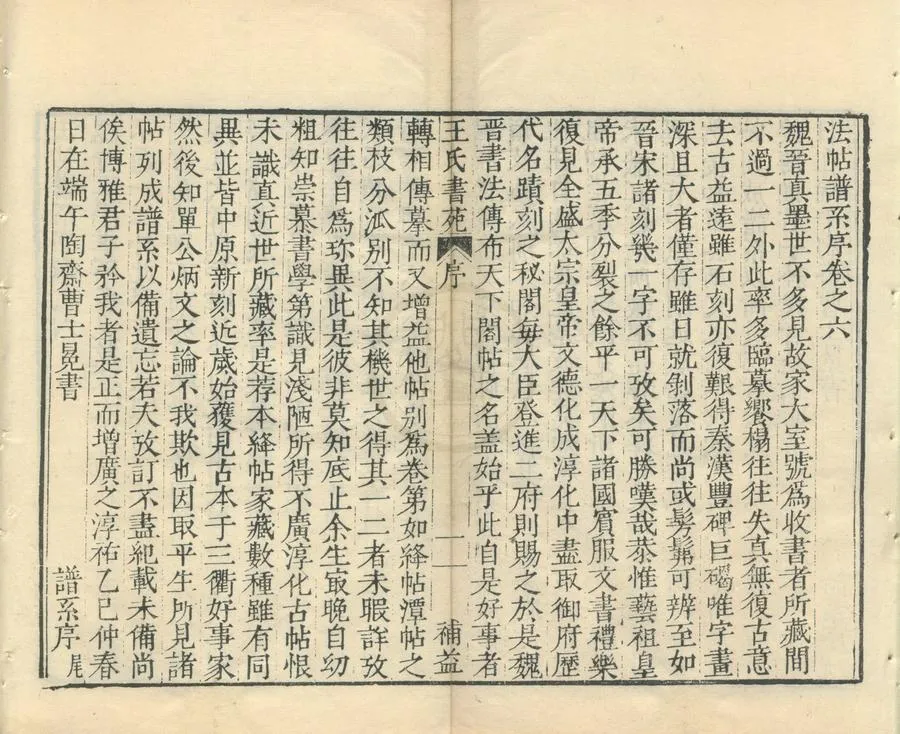 法帖譜系序卷之六
魏晉真墨世不多見故家大室號爲收書者所藏間
不過一二外此率多臨摹響榻往往失真無復古意
去古益遠雖石刻亦復艱得秦漢豐碑巨碣唯字畫
深且大者僅存雖日就剝落而尚或髣髴可辨至如
晉宋諸刻幾一字不可攷矣可勝嘆哉恭惟藝祖皇
帝承五季分裂之餘平一天下諸國賓服文書禮樂
復見全盛太宗皇帝文德化成淳化中盡取御府歷
代名蹟刻之秘閣每大臣登進二府則賜之於是魏
晉書法傳布天下閣帖之名盖始乎此自是好事者
王氏書苑 序 一 補益
轉相傳摹而又增益他帖别爲卷第如絳帖潭帖之
類枝分派别不知其機世之得其一二者未暇詳攷
往往自爲珎異此是彼非莫知底止余生㝡晚自㓜
粗知崇慕書學第識見淺陋所得不廣淳化古帖恨
未識真近世所藏率是荐本絳帖家藏數種雖有同
異並皆中原新刻近歲始獲見古本于三衢好事家
然後知單公炳文之論不我欺也因取平生所見諸
帖列成譜系以備遺忘若夫攷訂不盡紀載未備尚
俟博雅君子矜我者是正而增廣之淳祐乙巳仲春
日在端午陶齋曹士冕書
譜系序尾